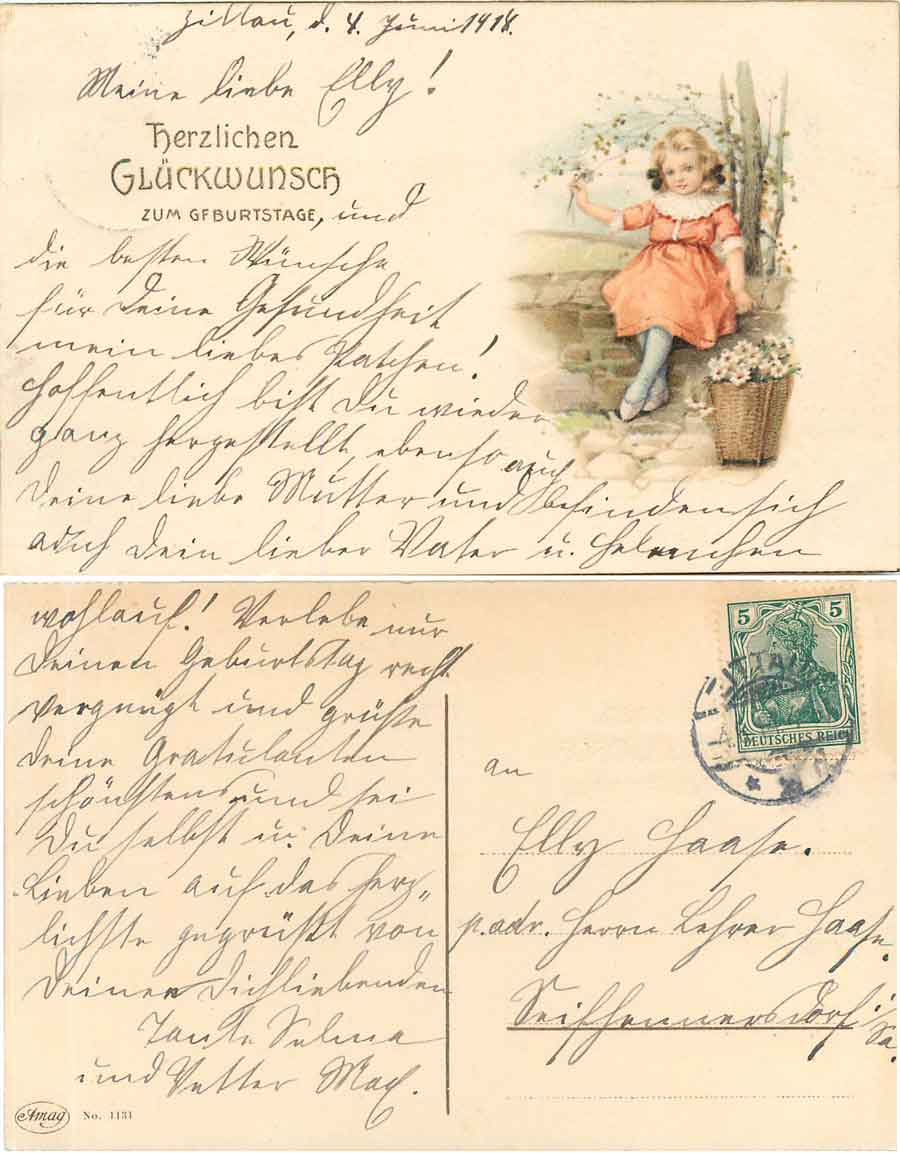 Zittau, d. 4. Juni 1914.
Meine liebe Elly!
Herzlichen
Glückwunsch
zum Geburtstage, und
die besten Wünsche
für Deine Gesundheit,
mein liebes Patchen!
Hoffentlich bist Du wieder
ganz hergestellt, ebenso auch
Deine liebe Mutter und befinden sich
auch Dein lieber Vater u. Helenchen
wohlauf! Verlebe nur
Deinen Geburtstag recht
vergnügt und grüße
Deine Gratulanten
schönstens und sei
Du selbst u. Deine
Lieben auf das herz„
lichste gegrüßt von
Deiner Dichliebenden
Tante Selma
und Vetter Max.
Amag No. 1131
5 5
DEUTSCHES REICH
ZITTAU
an
Elly Haase.
p. adr. Herrn Lehrer Haase.
Seifhennersdorf i/
Sa.